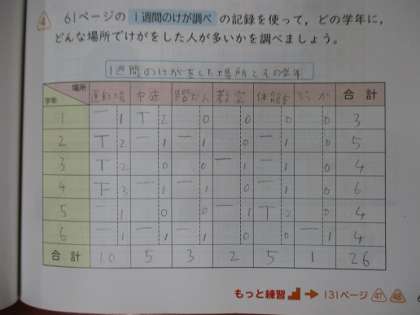 4 61ページの 1週間のけが調べ の記録を使って，どの学年に，
どんな場所でけがをした人が多いかを調べましょう。
1週間のけがをした場所とその学年
場所 学年 運動場 中庭 階だん 教室 体館 合計
1 一 1 T 2 0 0 0 0 3
2 T 2 一 1 一 1 0 一 1 0 5
3 T 2 0 0 一 1 一 1 0 4
4 下 3 一 1 一 1 0 一 1 0 6
5 一 1 0 0 一 1 T 2 0 4
6 一 1 一 1 一 1 0 0 一 1 4
合計 10 5 3 2 5 1 26
もっと練習 → 131ページ 47 48